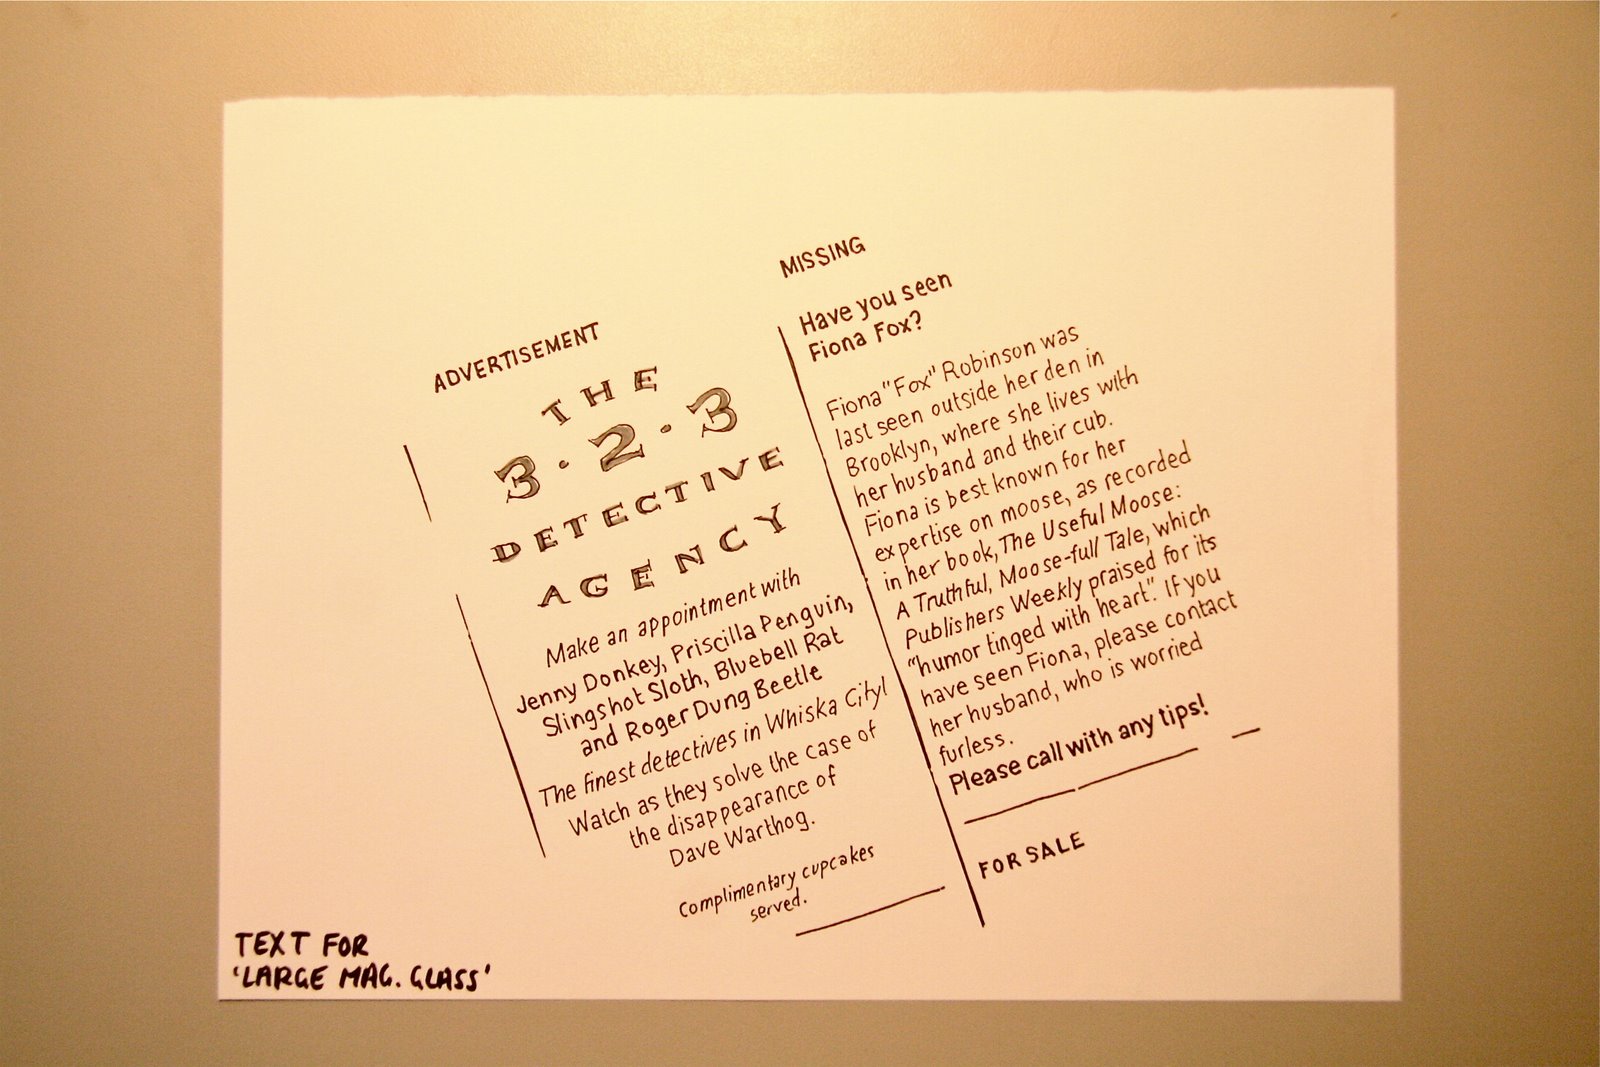 ADVERTISEMENT
THE
3·2·3
DETECTIVE
AGENCY
Make an appointment with
Jenny Donkey, Priscilla Penguin,
Slingshot Sloth, Bluebell Rat
and Roger Dung Beetle
The finest detectives in Whiska City!
Watch as they solve the case of
the disappearance of
Dave Warthog.
Complimentary cupcakes
served.
MISSING
Have you seen
Fiona Fox?
Fiona "Fox" Robinson was
last seen outside her den in
Brooklyn, where she lives with
her husband and their cub.
Fiona is best known for her
expertise on moose, as recorded
in her book, The Useful Moose:
A Truthful, Moose-full Tale, which
Publishers Weekly praised for its
"humor tinged with heart". If you
have seen Fiona, please contact
her husband, who is worried
furless.
Please call with any tips!
FOR SALE
TEXT FOR
'LARGE MAG. GLASS'